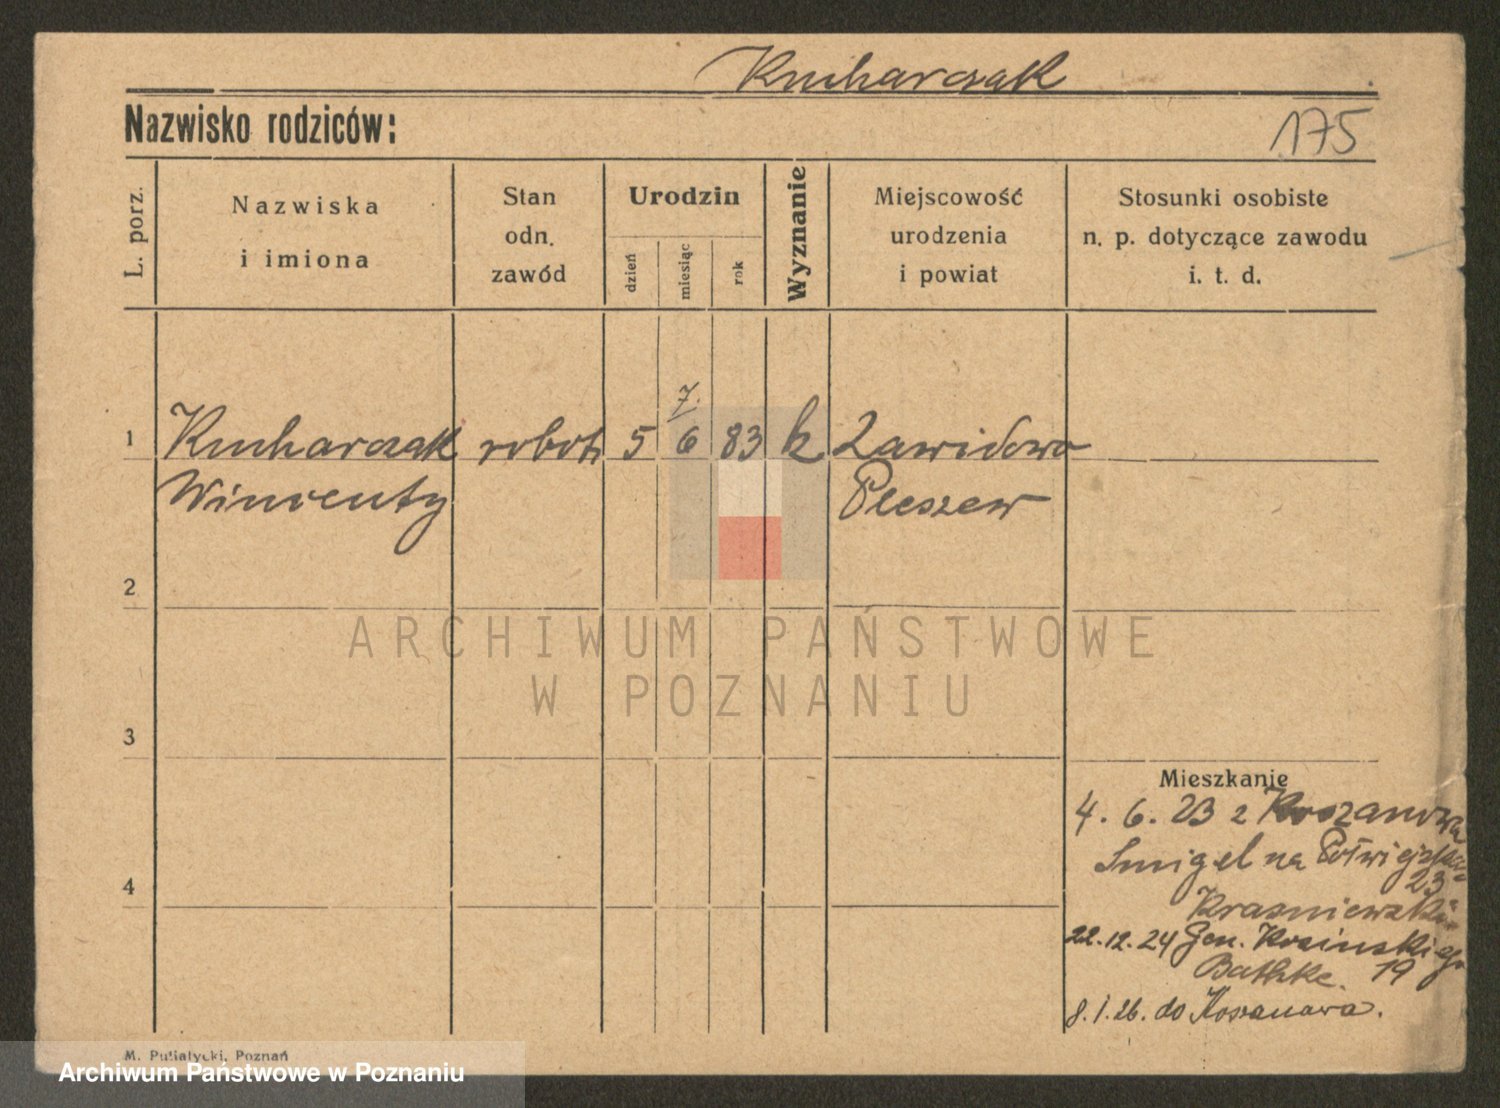 Kucharczak
Nazwisko rodziców:
175
L. porz.
Nazwiska
i imiona
Stan
odn.
zawód
Urodzin
dzień
miesiąc
rok
Wyznanie
Miejscowość
urodzenia
i powiat
Stosunki osobiste
n. p. dotyczące zawodu
i. t. d.
7.
1 Kucharczak robot. 5 6 83 k Zawidowo
Wincenty Pleszew
2
ARCHIWUM PAŃSTWOWE
W POZNANIU
3
Mieszkanie
4. 6. 23 z Koszanowa
Smigel na Półwiejska
23
4
Krasniewski
22.12.24 Gen. Kosinskiego
Bathke. 19
8.1.26. do Koszanowa.
M. Putiatycki, Poznań
Archiwum Państwowe w Poznaniu